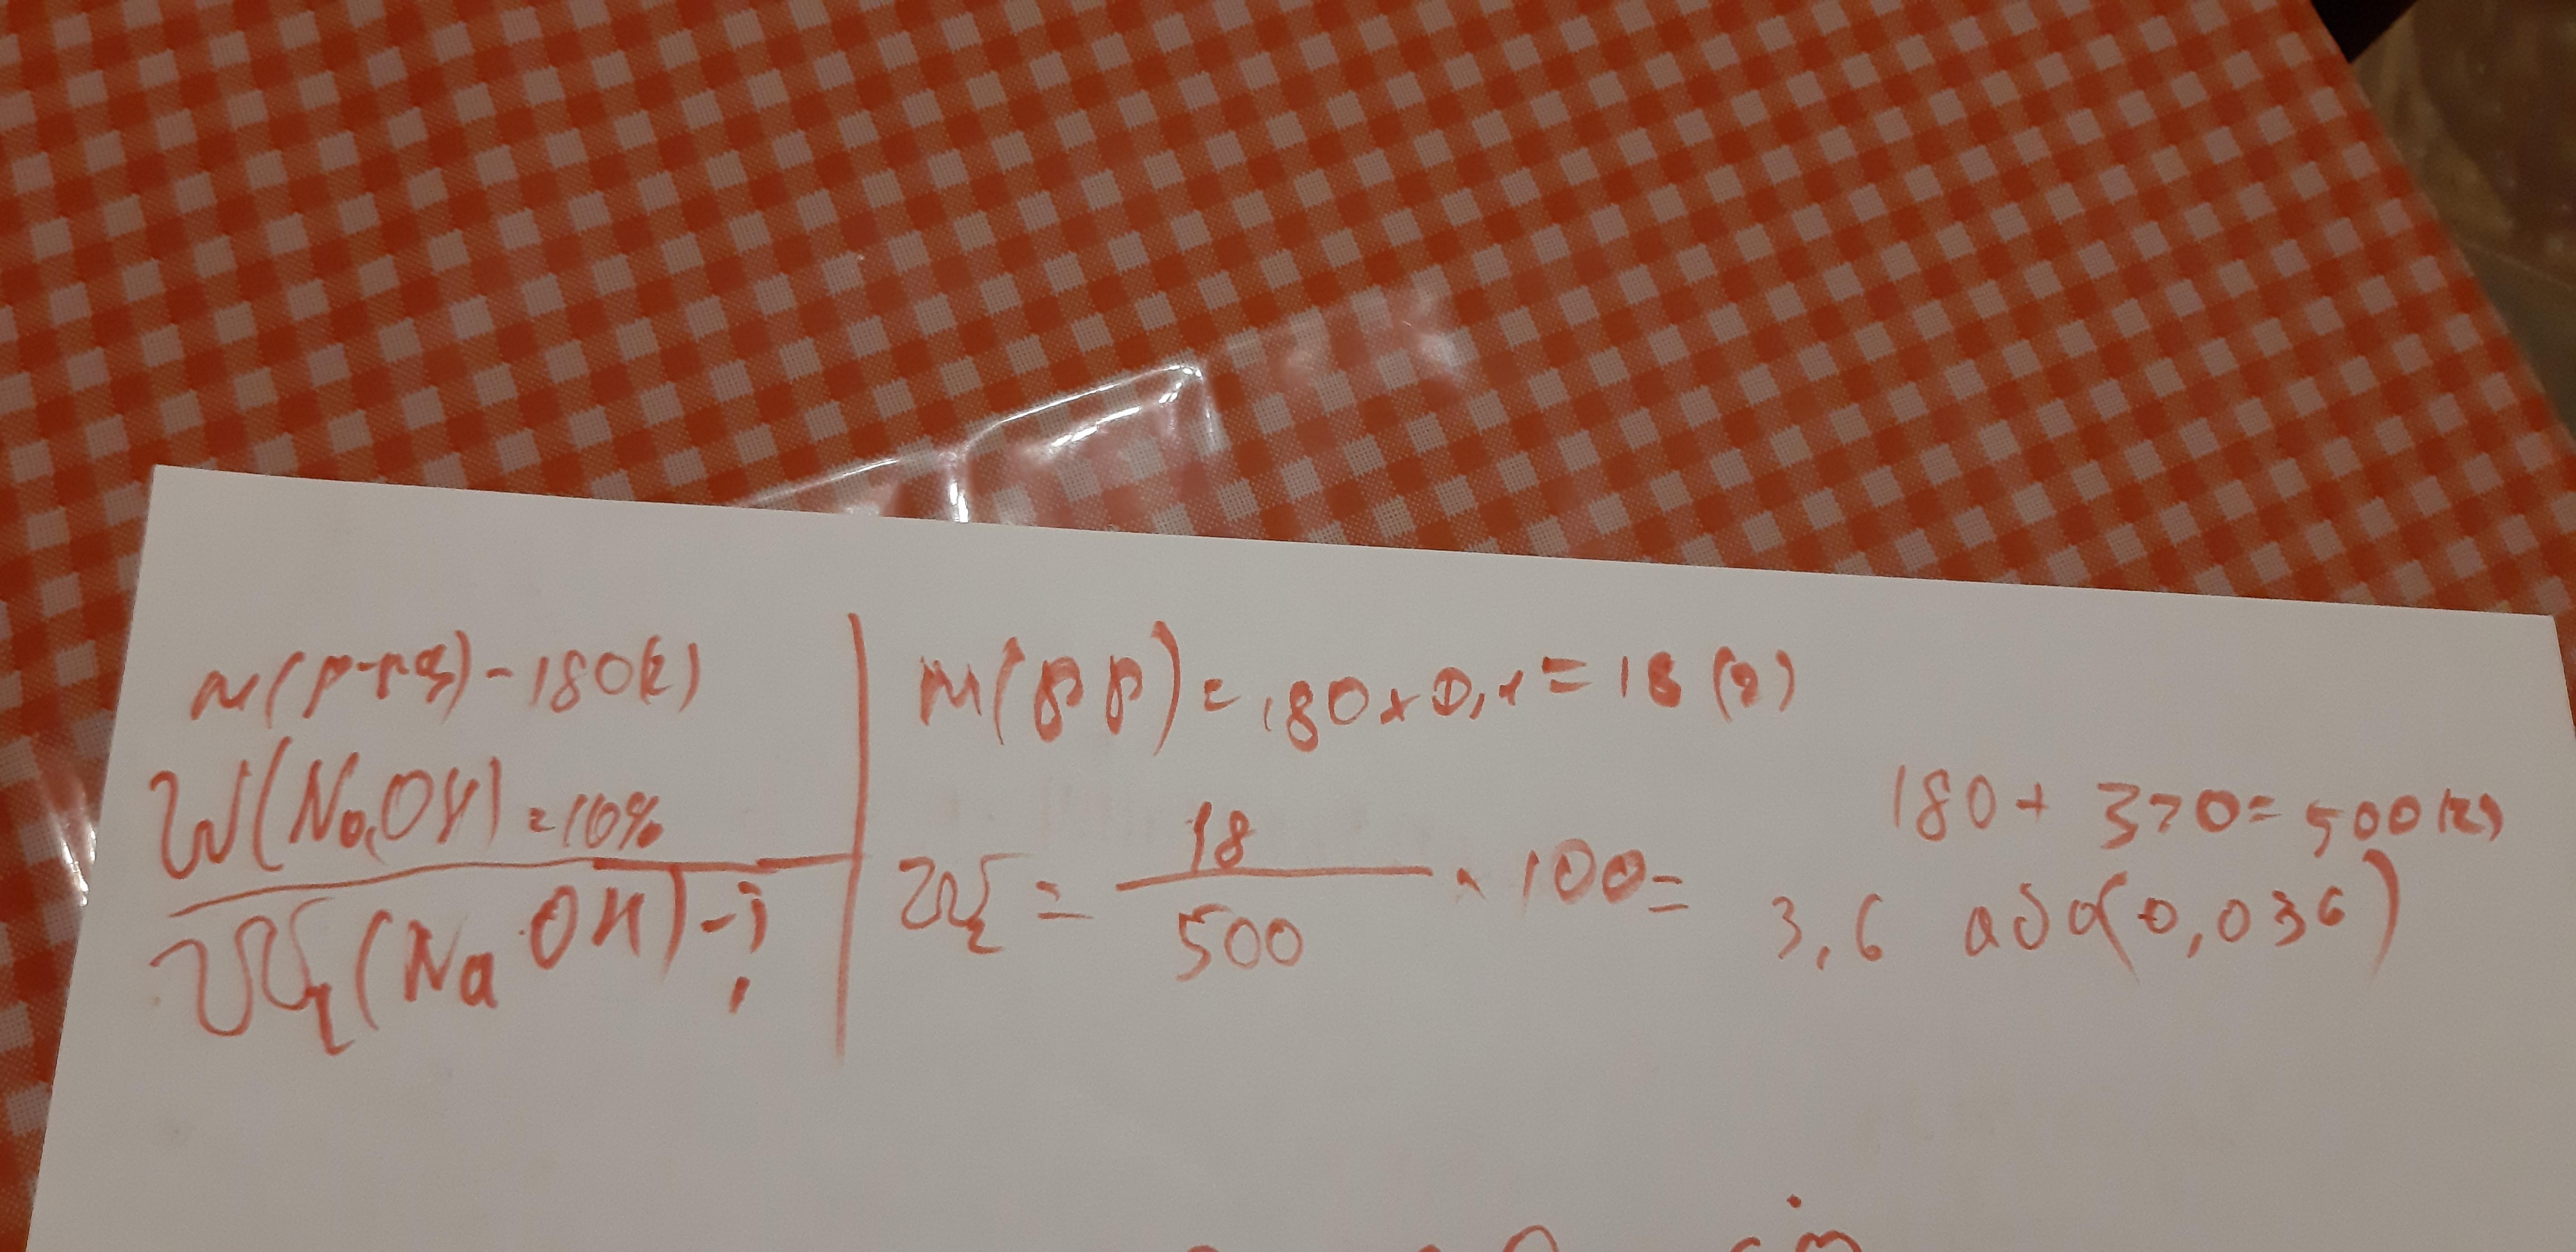 m(р-ну) - 180(г)
W(NaOH) = 10%
W₂(NaOH) - ?
m(рр) = 180 x 0,1 = 18 (г)
180 + 370 = 500 (г)
W₂ = 18/500 x 100 = 3,6 або (0,036)